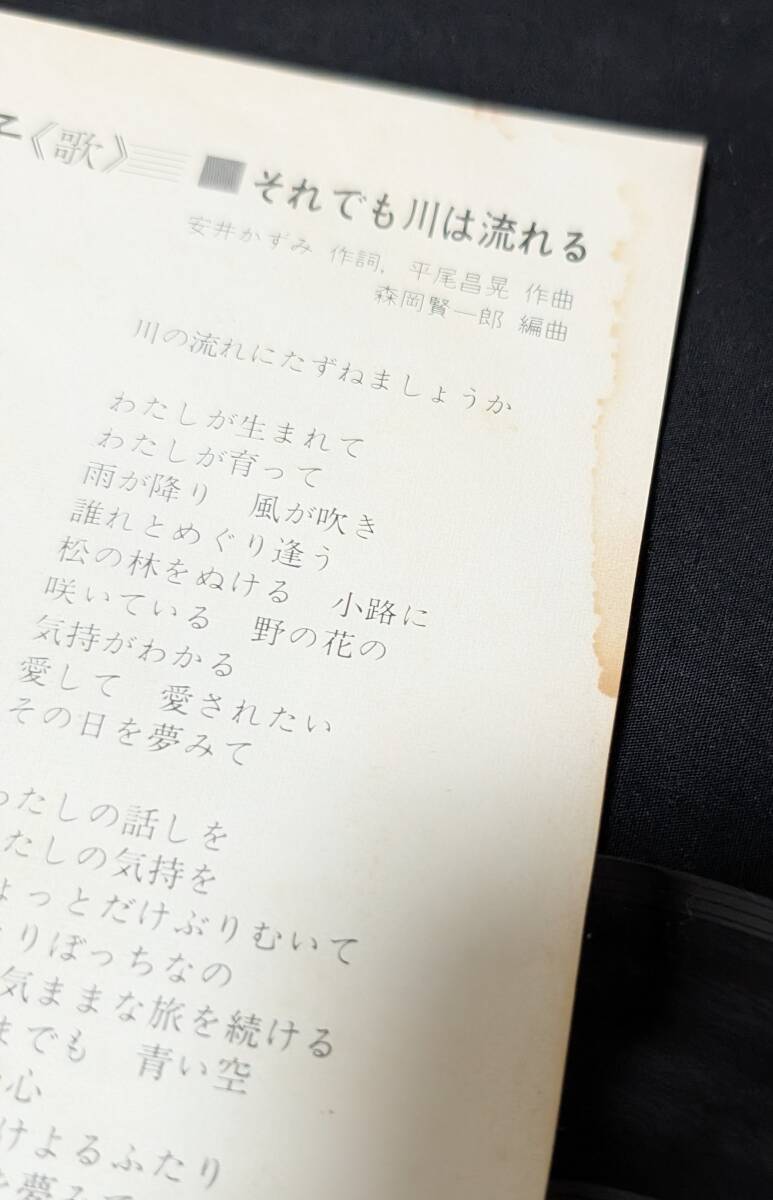 《歌》
■それでも川は流れる
安井かずみ 作詞, 平尾昌晃 作曲
森岡賢一郎 編曲
川の流れにたずねましょうか
わたしが生まれて
わたしが育って
雨が降り　風が吹き
誰れとめぐり逢う
松の林をぬける　小路に
咲いている　野の花の
気持がわかる
愛して　愛されたい
その日を夢みて
たしの話しを
たしの気持を
ょっとだけぶりむいて
りぼっちなの
気ままな旅を続ける
までも　青い空
心
けよるふたり
を夢みて